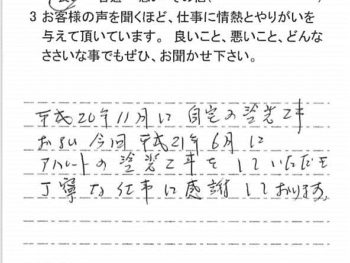 3 お客様の声を聞くほど、仕事に情熱とやりがいを
与えて頂いています。 良いこと、悪いこと、どんな
ささいな事でもぜひ、お聞かせ下さい。
平成20年11月に 自宅の塗装工事
および 今回 平成21年6月に
アパートの塗装工事をしていただき
丁寧な仕事に感謝しております。